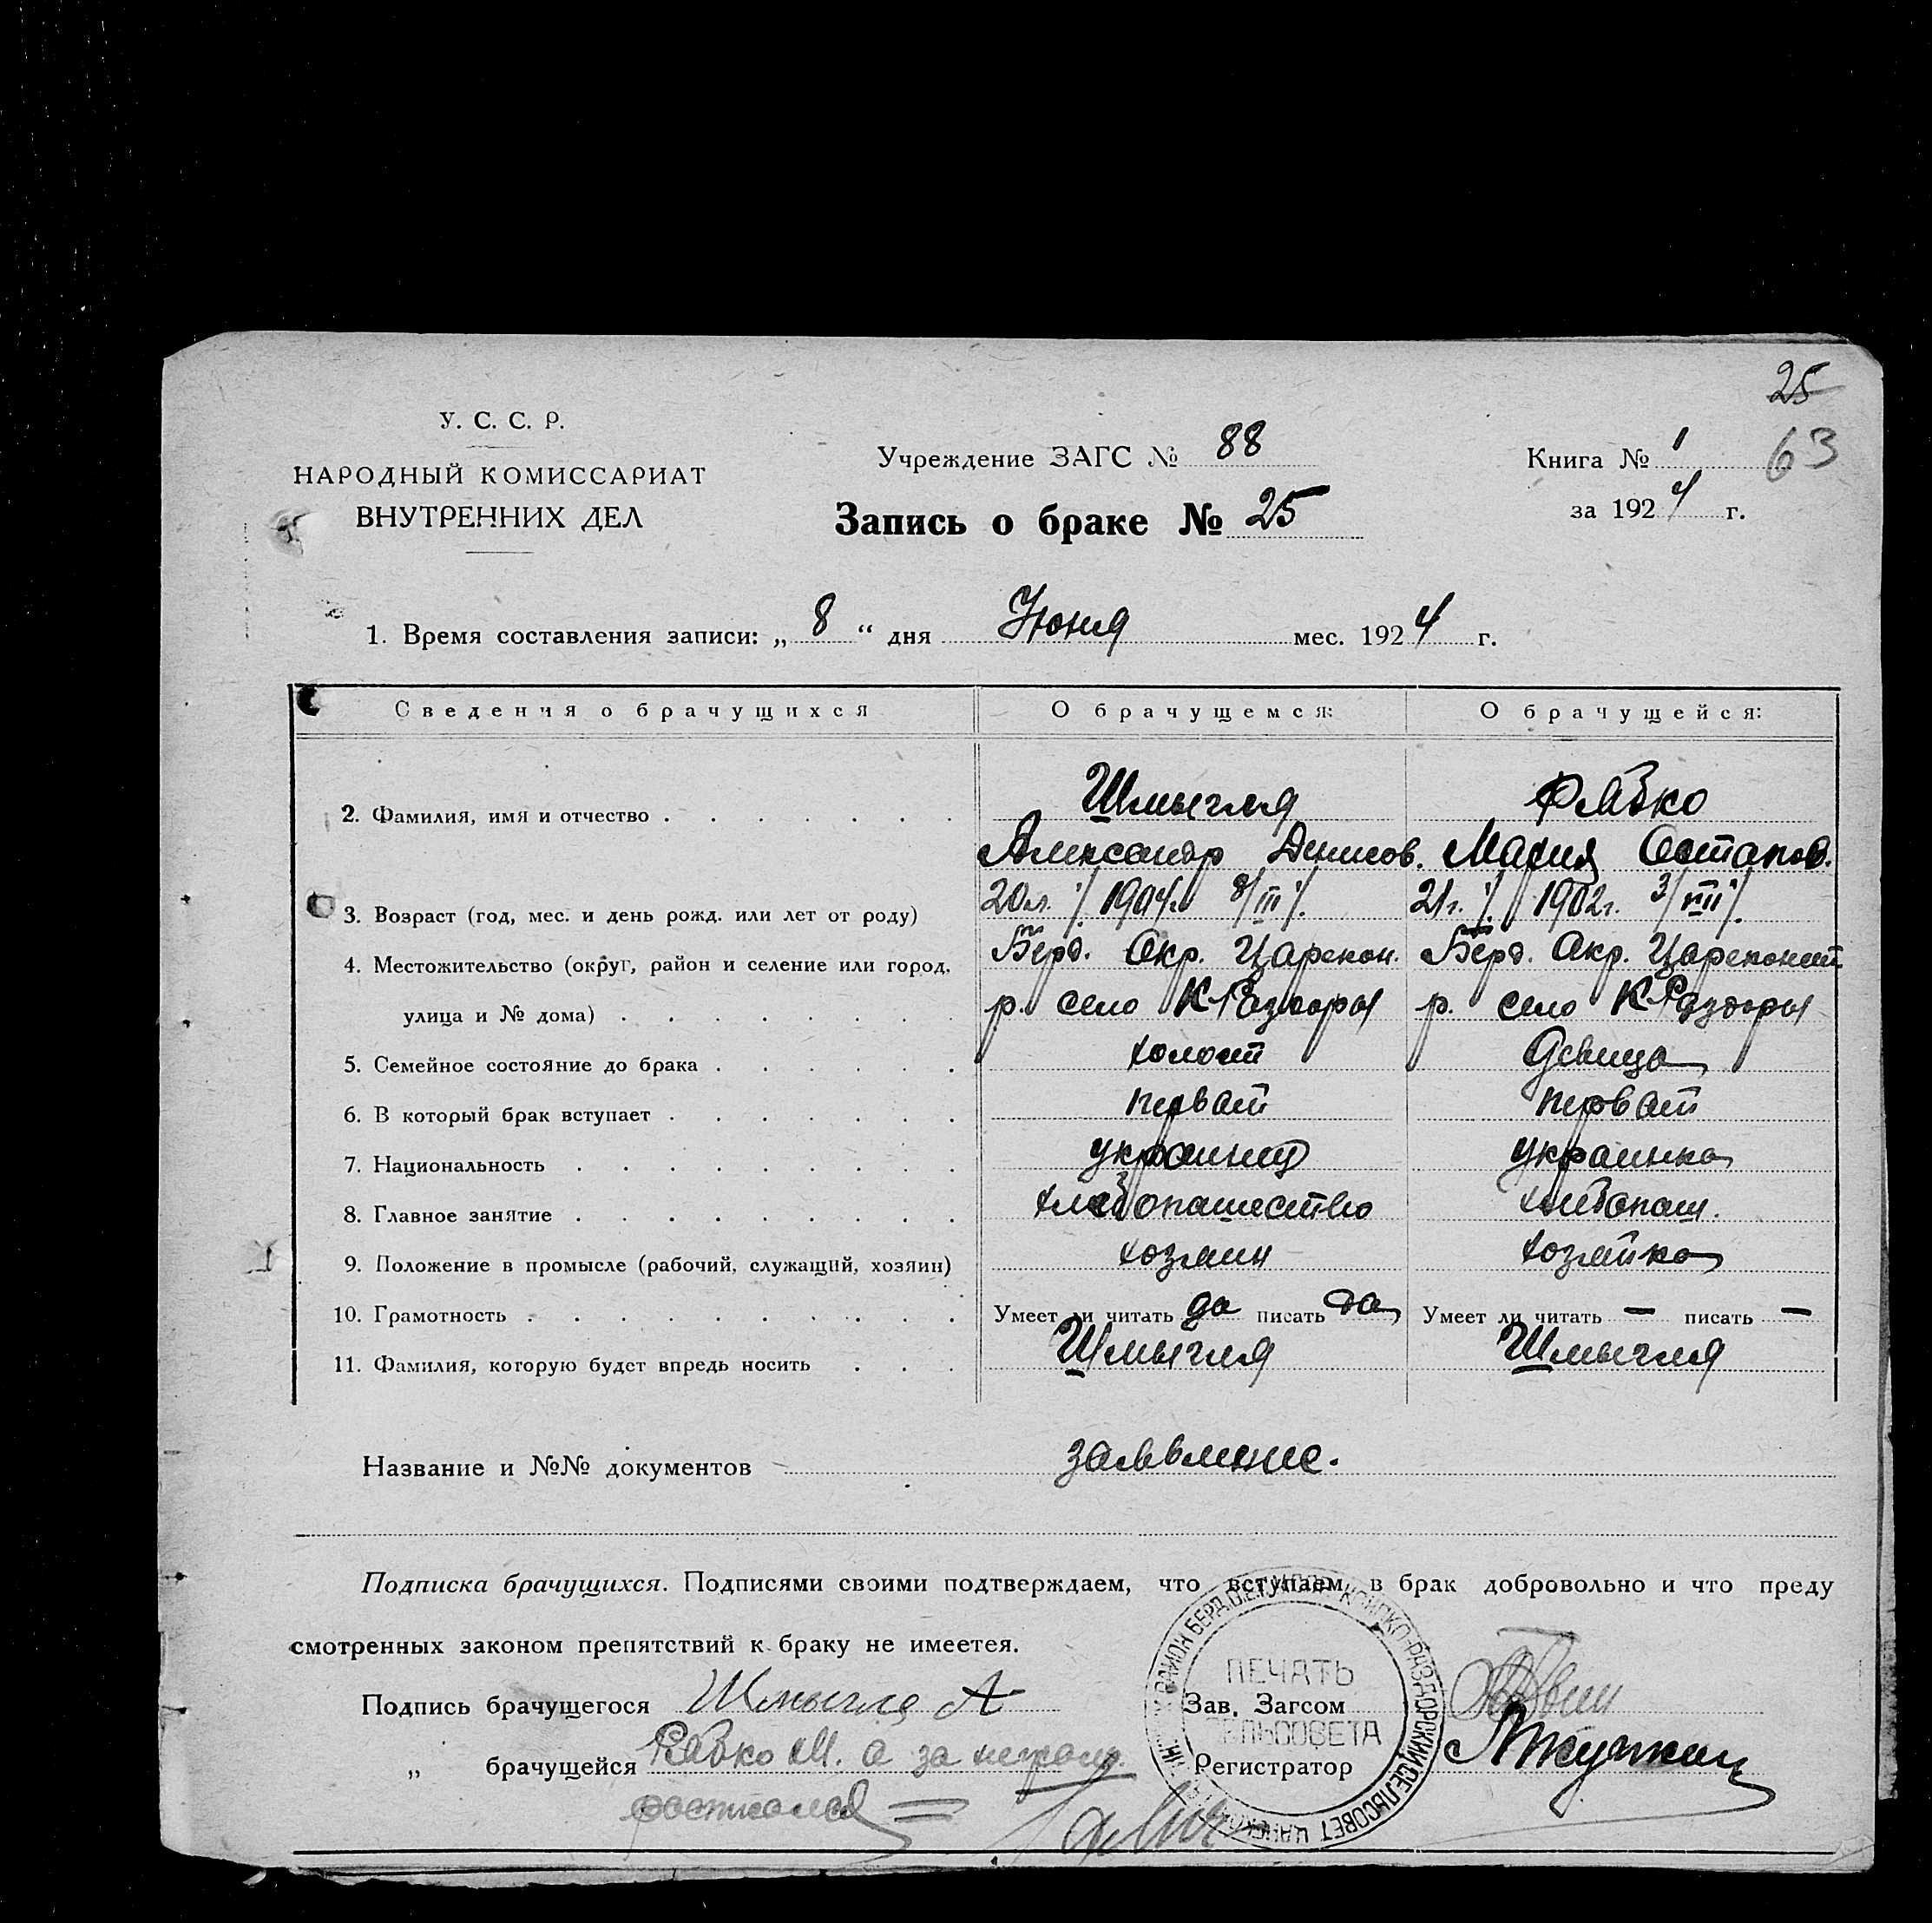 25
63
У. С. С. Р.
НАРОДНЫЙ КОМИССАРИАТ
ВНУТРЕННИХ ДЕЛ
Учреждение ЗАГС № 88
Книга № 1
за 1924 г.
Запись о браке № 25
1. Время составления записи: „ 8 “ дня Июня мес. 1924 г.
Сведения о брачущихся О брачущемся: О брачущейся:
2. Фамилия, имя и отчество Шмыгля Рябко
Александр Денисов. Мария Остапов.
3. Возраст (год, мес. и день рожд. или лет от роду) 20 л. 1904 г. 8/III 21 г. 1902 г.
4. Местожительство (округ, район и селение или город, Берд. Окр. Царекон. Берд. Окр. Цареконст.
улица и № дома) р. село К-Раздоры р. село К-Раздоры
5. Семейное состояние до брака холост Девица
6. В который брак вступает первый первый
7. Национальность украинец украинка
8. Главное занятие хлебопашество хлебопаш.
9. Положение в промысле (рабочий, служащий, хозяин) хозяин хозяйка
10. Грамотность Умеет ли читать да писать да Умеет ли читать — писать —
11. Фамилия, которую будет впредь носить Шмыгля Шмыгля
Название и №№ документов заявление.
Подписка брачущихся. Подписями своими подтверждаем, что вступаем в брак добровольно и что преду
смотренных законом препятствий к браку не имеетея.
Подпись брачущегося Шмыгля А Зав. Загсом
„ брачущейся Рябко М. а за неграм. Регистратор
ПЕЧАТЬ
СЕЛЬСОВЕТА